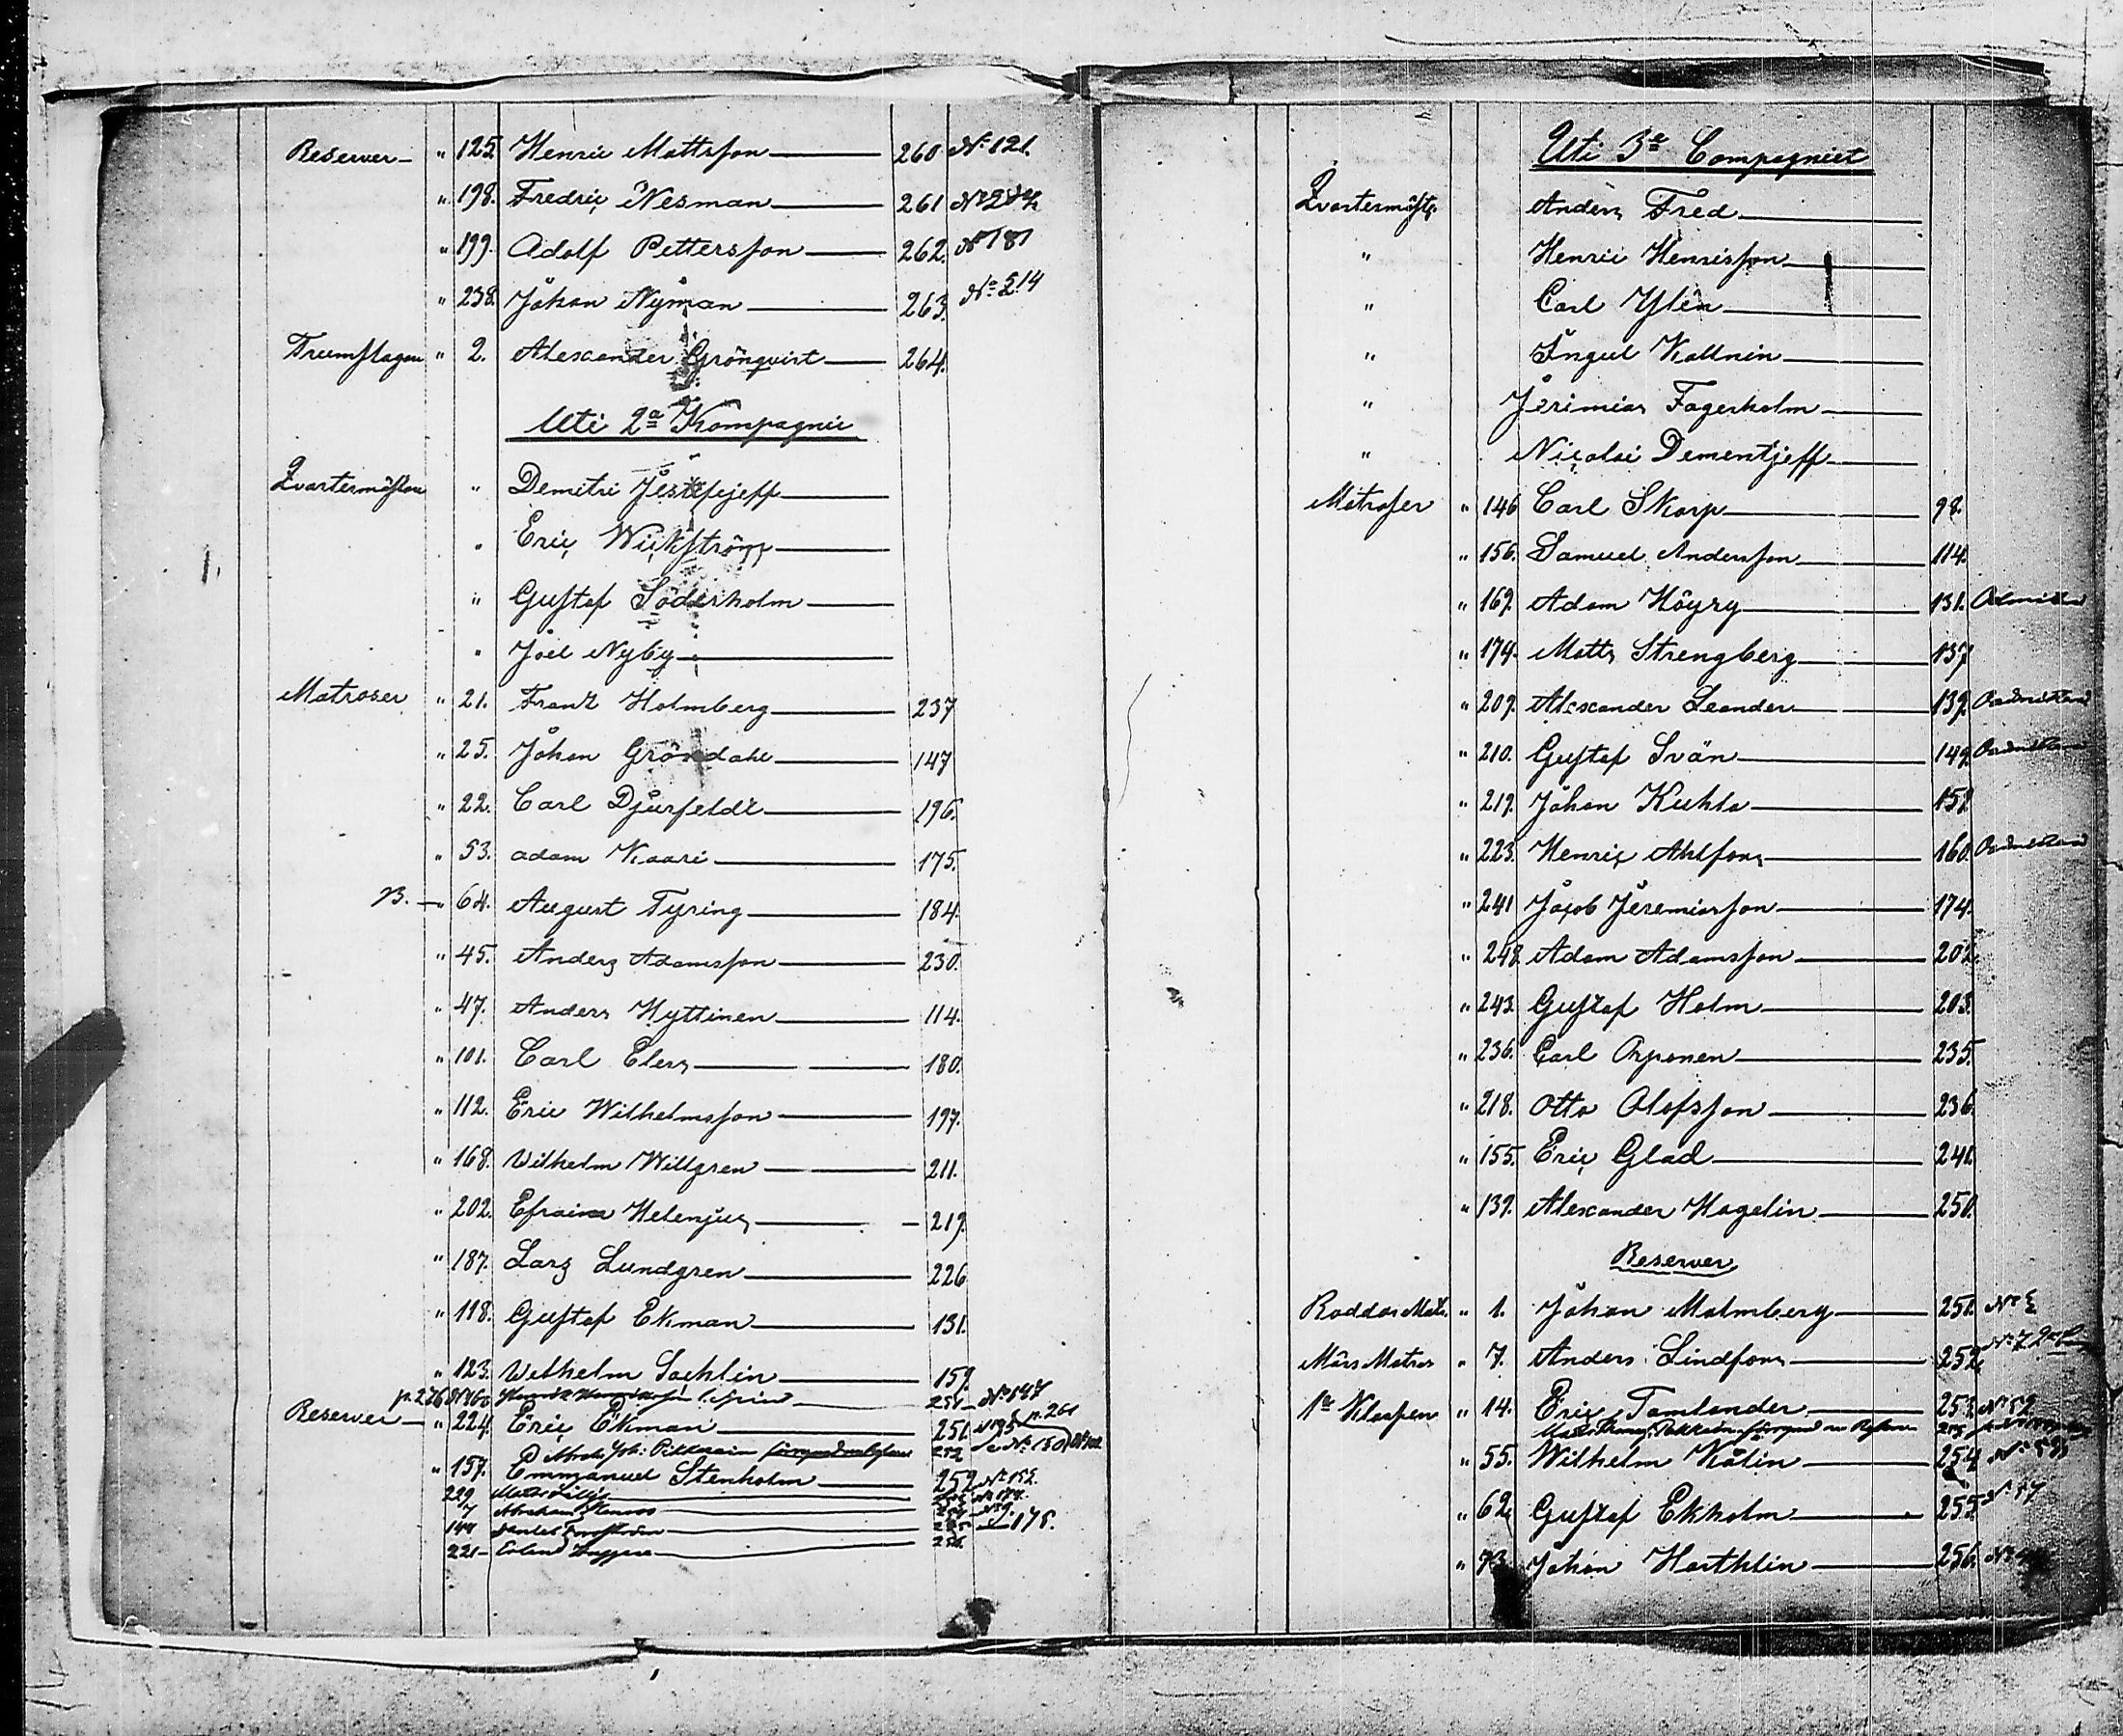 Reserver — " 125. Henric Mattsson — 260. No 121.
" 198. Fredric Nesman — 261 No
" 199. Adolf Pettersson — 262. No 181
" 238. Johan Nyman — 263. No 214
Trumslagare " 2. Alexander Grönqvist — 264.
Uti 2a Kompagnie
Qvartermästare " Demitri Jestefejeff —
" Eric Wickström —
" Gustaf Söderholm —
" Joel Nyby —
Matroser " 21. Frant Holmberg — 237
" 25. Johan Gröndahl — 147
" 22. Carl Djurfeldt — 196.
" 53. Adam Kaari — 175.
B. — " 64. August Tyring — 184.
" 45. Anders Adamsson — 230.
" 47. Anders Hyttinen — 114.
" 101. Carl Elers — 180.
" 112. Eric Wilhelmsson — 197.
" 168. Wilhelm Willgren — 211.
" 202. Efraim Helenius — 219.
" 187. Lars Lundgren — 226
" 118. Gustaf Ekman — 131.
" 123. Wilhelm Sachlin — 159.
Reserver — " 224. Eric Ekman — 251
" 157. Emmanuel Stenholm — 252 No 152.
229
7 Abraham
144 175.
221 — Erland 256.
Uti 3e Compagniet
Qvartermäst. Anders Fred —
" Henric Henricsson —
" Carl Ylén —
" Ingul Kallnin —
" Jerimias Fagerholm —
" Nicolai Dementjeff —
Matroser " 146 Carl Skarp — 98.
" 156. Samuel Andersson — 114.
" 169. Adam Höyry — 131.
" 174. Matts Strengberg — 137
" 209. Alexander Leander — 139.
" 210. Gustaf Svän — 149.
" 219. Johan Kuhla — 159
" 223. Henric Ahlfors — 160.
" 241 Jacob Jeremiasson — 174.
" 248. Adam Adamsson — 202.
" 243. Gustaf Holm — 203.
" 236. Carl Orponen — 235.
" 218. Otto Olofsson — 236
" 155. Eric Glad — 241.
" 139. Alexander Hagelin — 250.
Reserver
" 1. Johan Malmberg — 251.
Märs Matros " 7. Anders Lindfors — 252.
1e Klassen " 14. Eric Tamlander — 253. No 52
" 55. Wilhelm Kälin — 254
" 62. Gustaf Ekholm — 255. No 57
" 73. Johan Harthlin — 256.